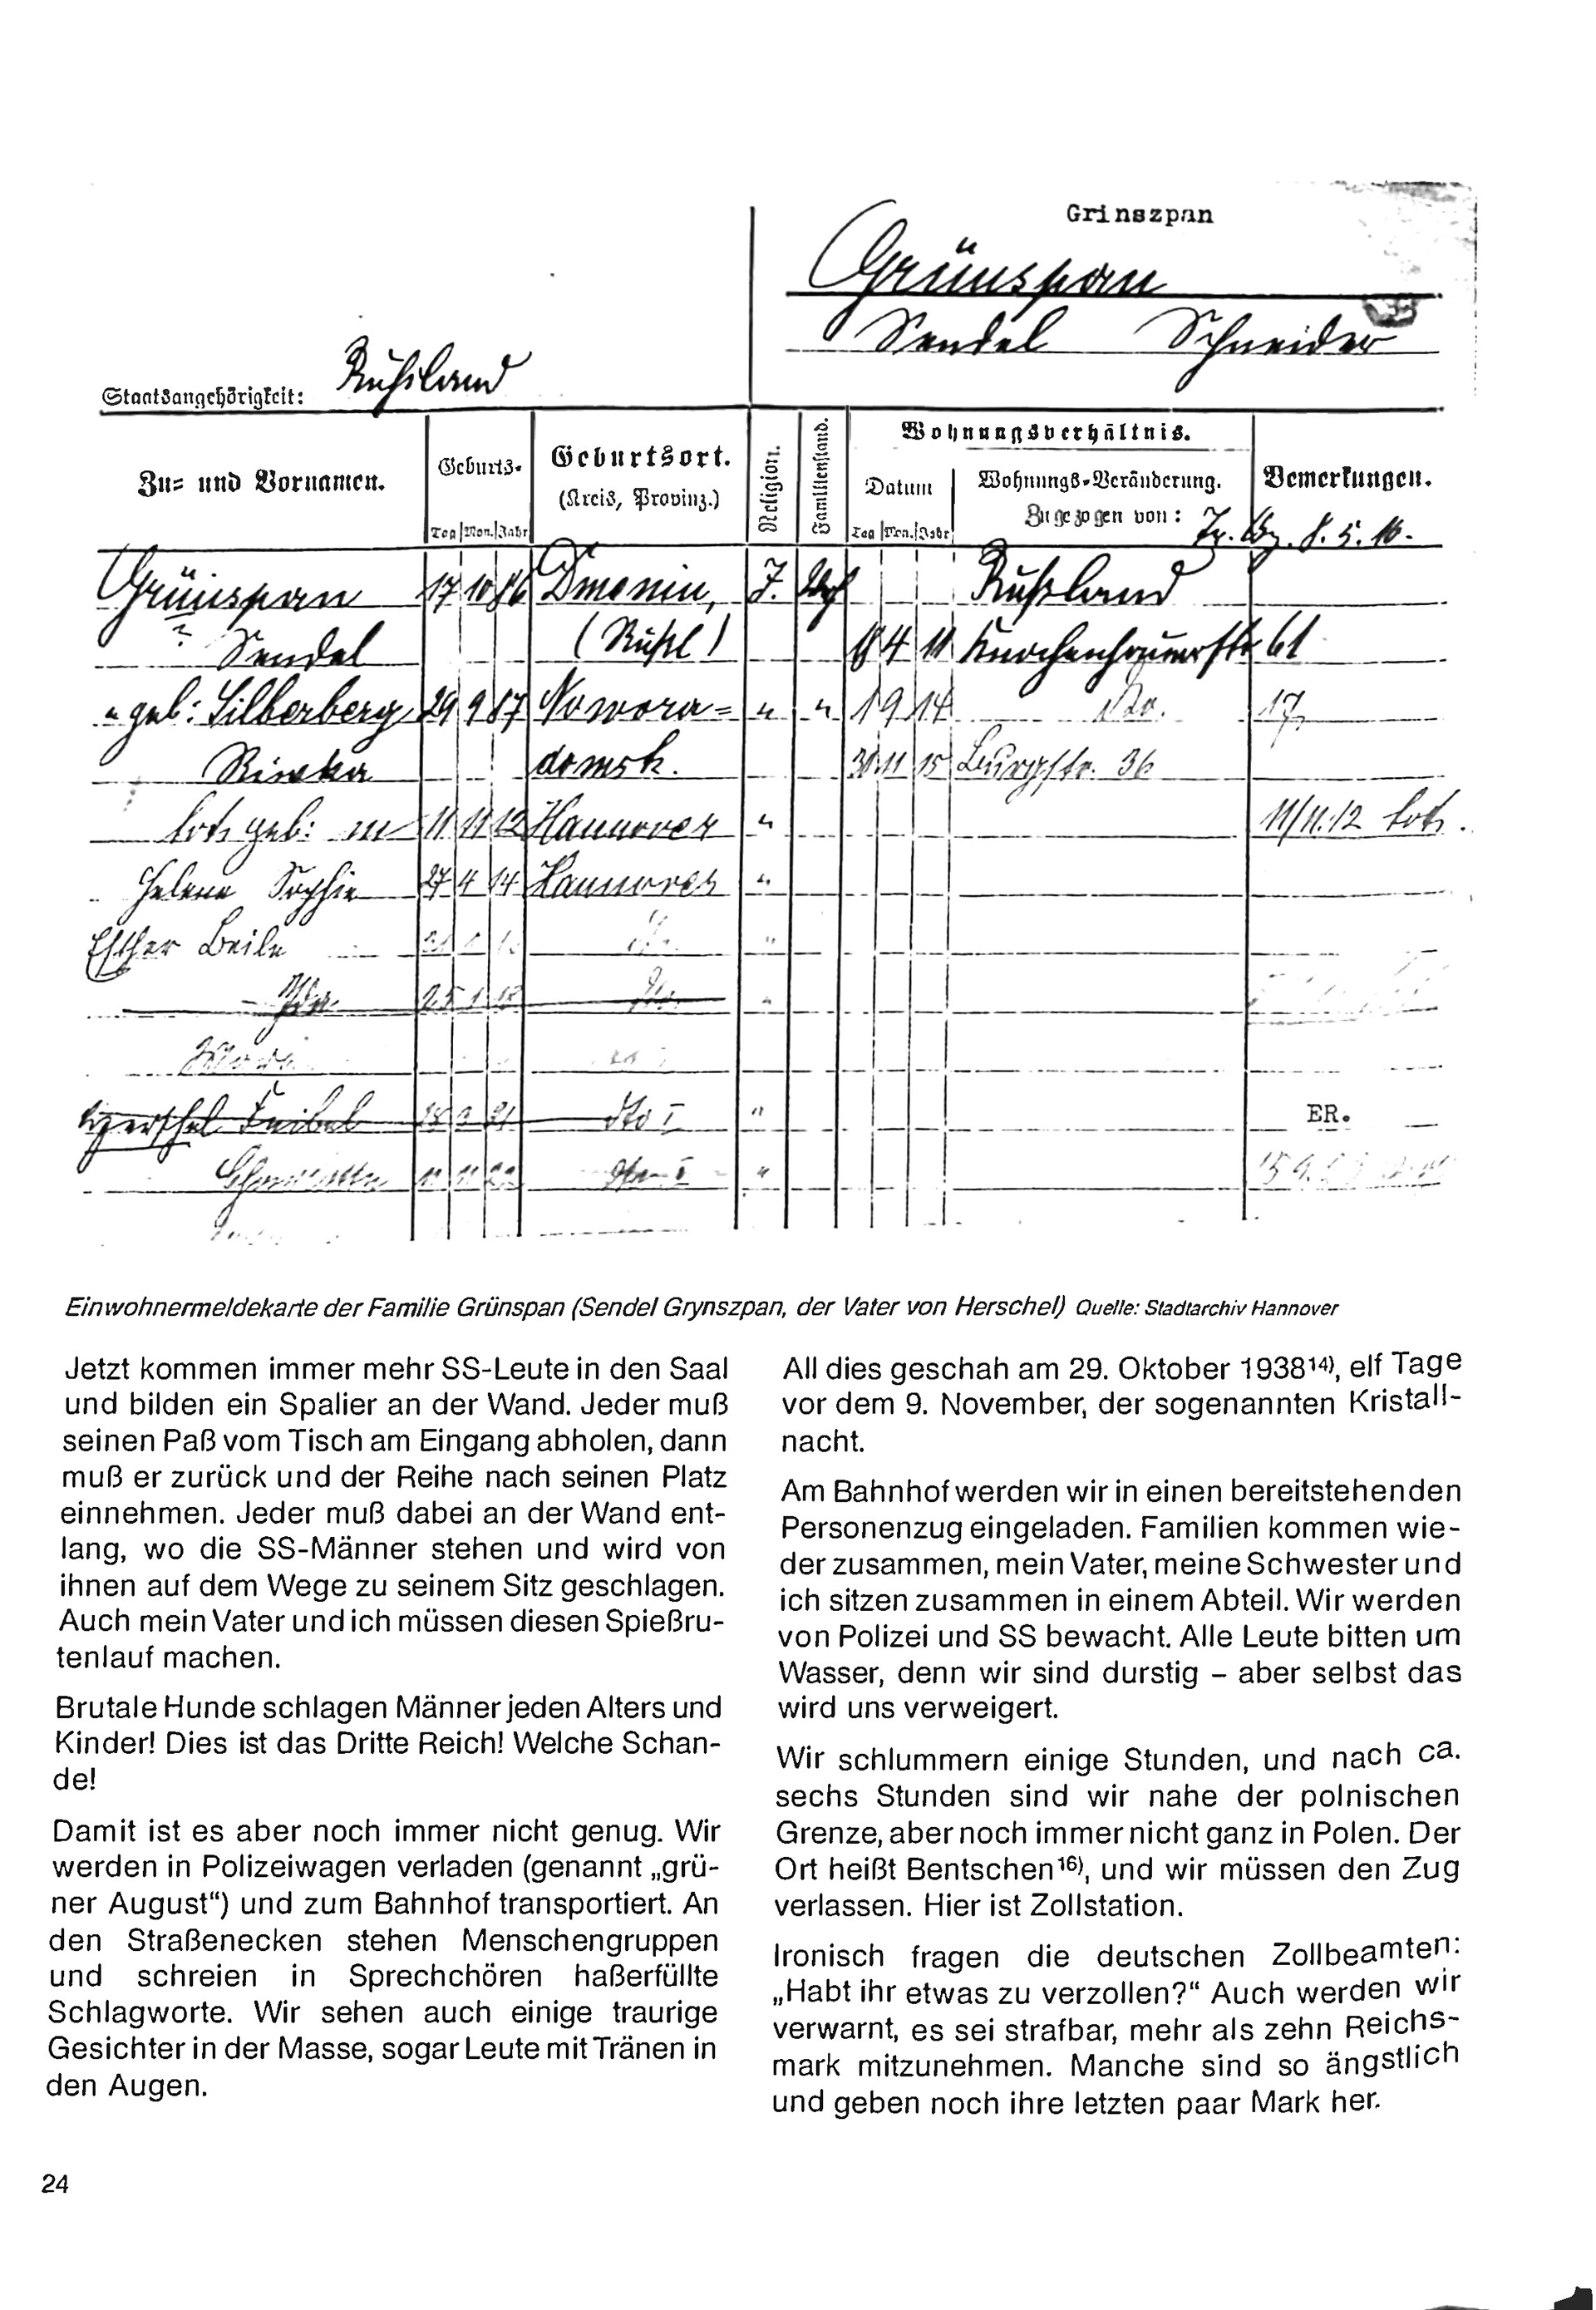 Grinszpan
Grünspan
Sendel Schneider
Staatsangehörigkeit: Rußland
Zu- und Vornamen. Geburts- Geburtsort. Religion. Familienstand. Wohnungsverhältnis. Bemerkungen.
(Kreis, Provinz.) Datum Wohnungs-Veränderung.
Tag Mon. Jahr Tag Mon. Jahr Zugezogen von:
8. 5. 16.
Grünspan 17 10 86 Dmenin, J. Rußland
? Sendel (Rußl) 18 4 11 Knochenhauerstr 61
" geb: Silberberg 29 9 87 Nowora= " " 1 9 14 do. 17,
Riwka domsk. 30 11 15 Burgstr. 36
tot geb: m 11 11 12 Hannover " 11/11.12 tot.
Helene Sophie 27 4 14 Hannover "
Esther Beile "
"
Herschel Feibel 28 3 21 dto I " ER.
"
Einwohnermeldekarte der Familie Grünspan (Sendel Grynszpan, der Vater von Herschel) Quelle: Stadtarchiv Hannover
Jetzt kommen immer mehr SS-Leute in den Saal
und bilden ein Spalier an der Wand. Jeder muß
seinen Paß vom Tisch am Eingang abholen, dann
muß er zurück und der Reihe nach seinen Platz
einnehmen. Jeder muß dabei an der Wand ent-
lang, wo die SS-Männer stehen und wird von
ihnen auf dem Wege zu seinem Sitz geschlagen.
Auch mein Vater und ich müssen diesen Spießru-
tenlauf machen.
Brutale Hunde schlagen Männer jeden Alters und
Kinder! Dies ist das Dritte Reich! Welche Schan-
de!
Damit ist es aber noch immer nicht genug. Wir
werden in Polizeiwagen verladen (genannt „grü-
ner August“) und zum Bahnhof transportiert. An
den Straßenecken stehen Menschengruppen
und schreien in Sprechchören haßerfüllte
Schlagworte. Wir sehen auch einige traurige
Gesichter in der Masse, sogar Leute mit Tränen in
den Augen.
All dies geschah am 29. Oktober 1938¹⁴⁾, elf Tage
vor dem 9. November, der sogenannten Kristall-
nacht.
Am Bahnhof werden wir in einen bereitstehenden
Personenzug eingeladen. Familien kommen wie-
der zusammen, mein Vater, meine Schwester und
ich sitzen zusammen in einem Abteil. Wir werden
von Polizei und SS bewacht. Alle Leute bitten um
Wasser, denn wir sind durstig – aber selbst das
wird uns verweigert.
Wir schlummern einige Stunden, und nach ca.
sechs Stunden sind wir nahe der polnischen
Grenze, aber noch immer nicht ganz in Polen. Der
Ort heißt Bentschen¹⁶⁾, und wir müssen den Zug
verlassen. Hier ist Zollstation.
Ironisch fragen die deutschen Zollbeamten:
„Habt ihr etwas zu verzollen?“ Auch werden wir
verwarnt, es sei strafbar, mehr als zehn Reichs-
mark mitzunehmen. Manche sind so ängstlich
und geben noch ihre letzten paar Mark her.
24